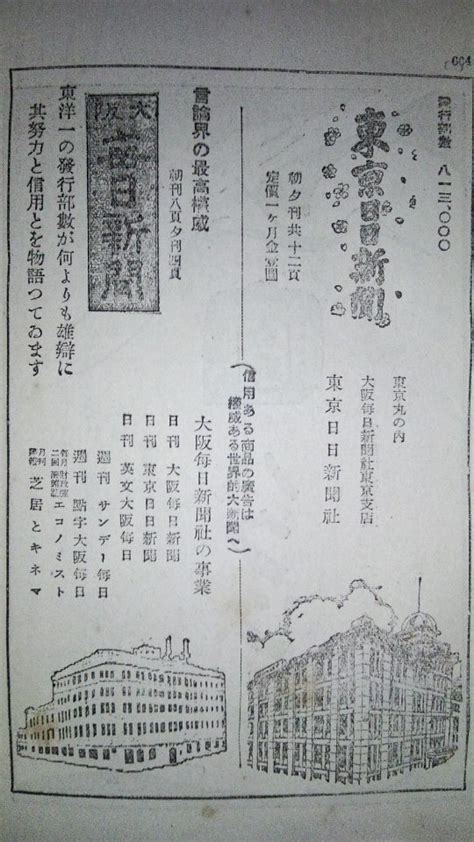 664
發行部數 八一三、〇〇〇
東京日日新聞
朝夕刊共十二頁
定價一ヶ月金壹圓
東京丸の內
大阪每日新聞社東京支店
東京日日新聞社
信用ある商品の廣告は
權威ある世界的大新聞へ
言論界の最高權威
大阪
每日新聞
朝刊八頁夕刊四頁
東洋一の發行部數が何よりも雄辯に
其努力と信用とを物語つてゐます
大阪每日新聞社の事業
日刊 大阪每日新聞
日刊 東京日日新聞
日刊 英文大阪每日
週刊 サンデー每日
週刊 點字大阪每日
每月二回 エコノミスト
月刊 芝居とキネマ